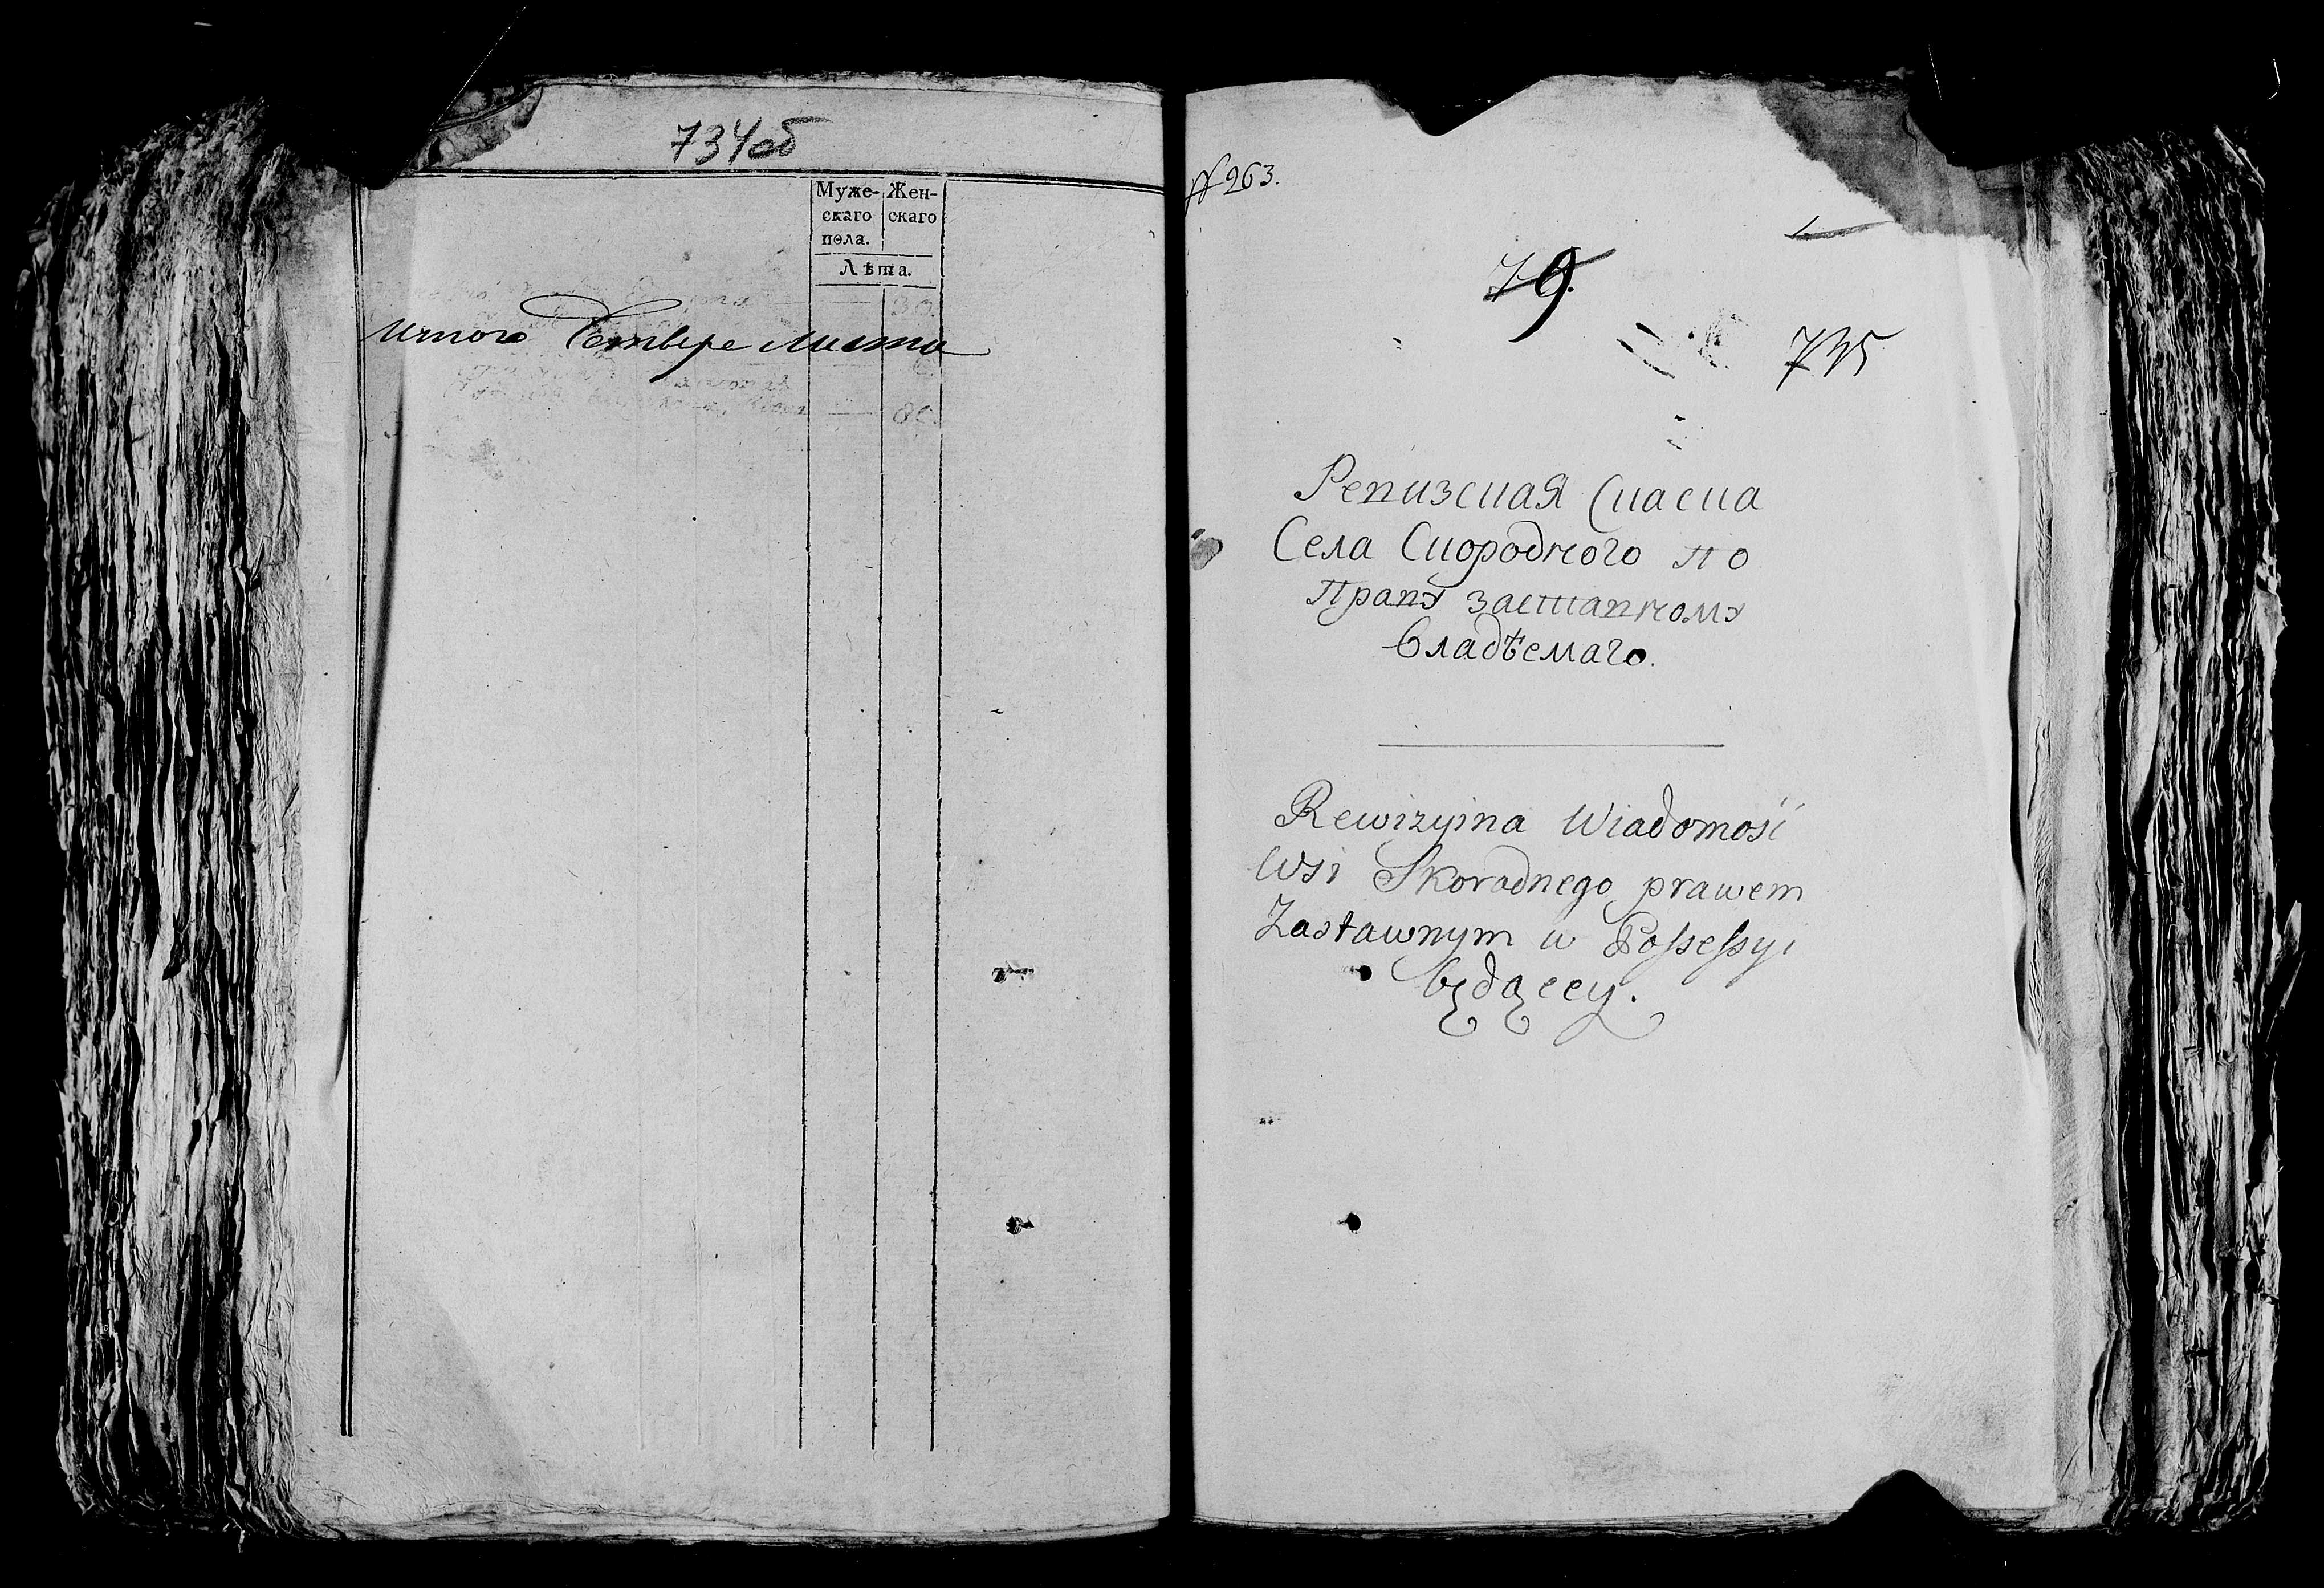 734об
Муже- Жен-
скаго скаго
пола.
Лѣта.
30.
итого Четыре листа
№ 963.
79.
735
Ревизская Скаска
Села Скородного по
Праву заставному
владѣемаго.
Rewizyina Wiadomość
Wsi Skorodnego prawem
Zastawnym w Possessyi
będącey.